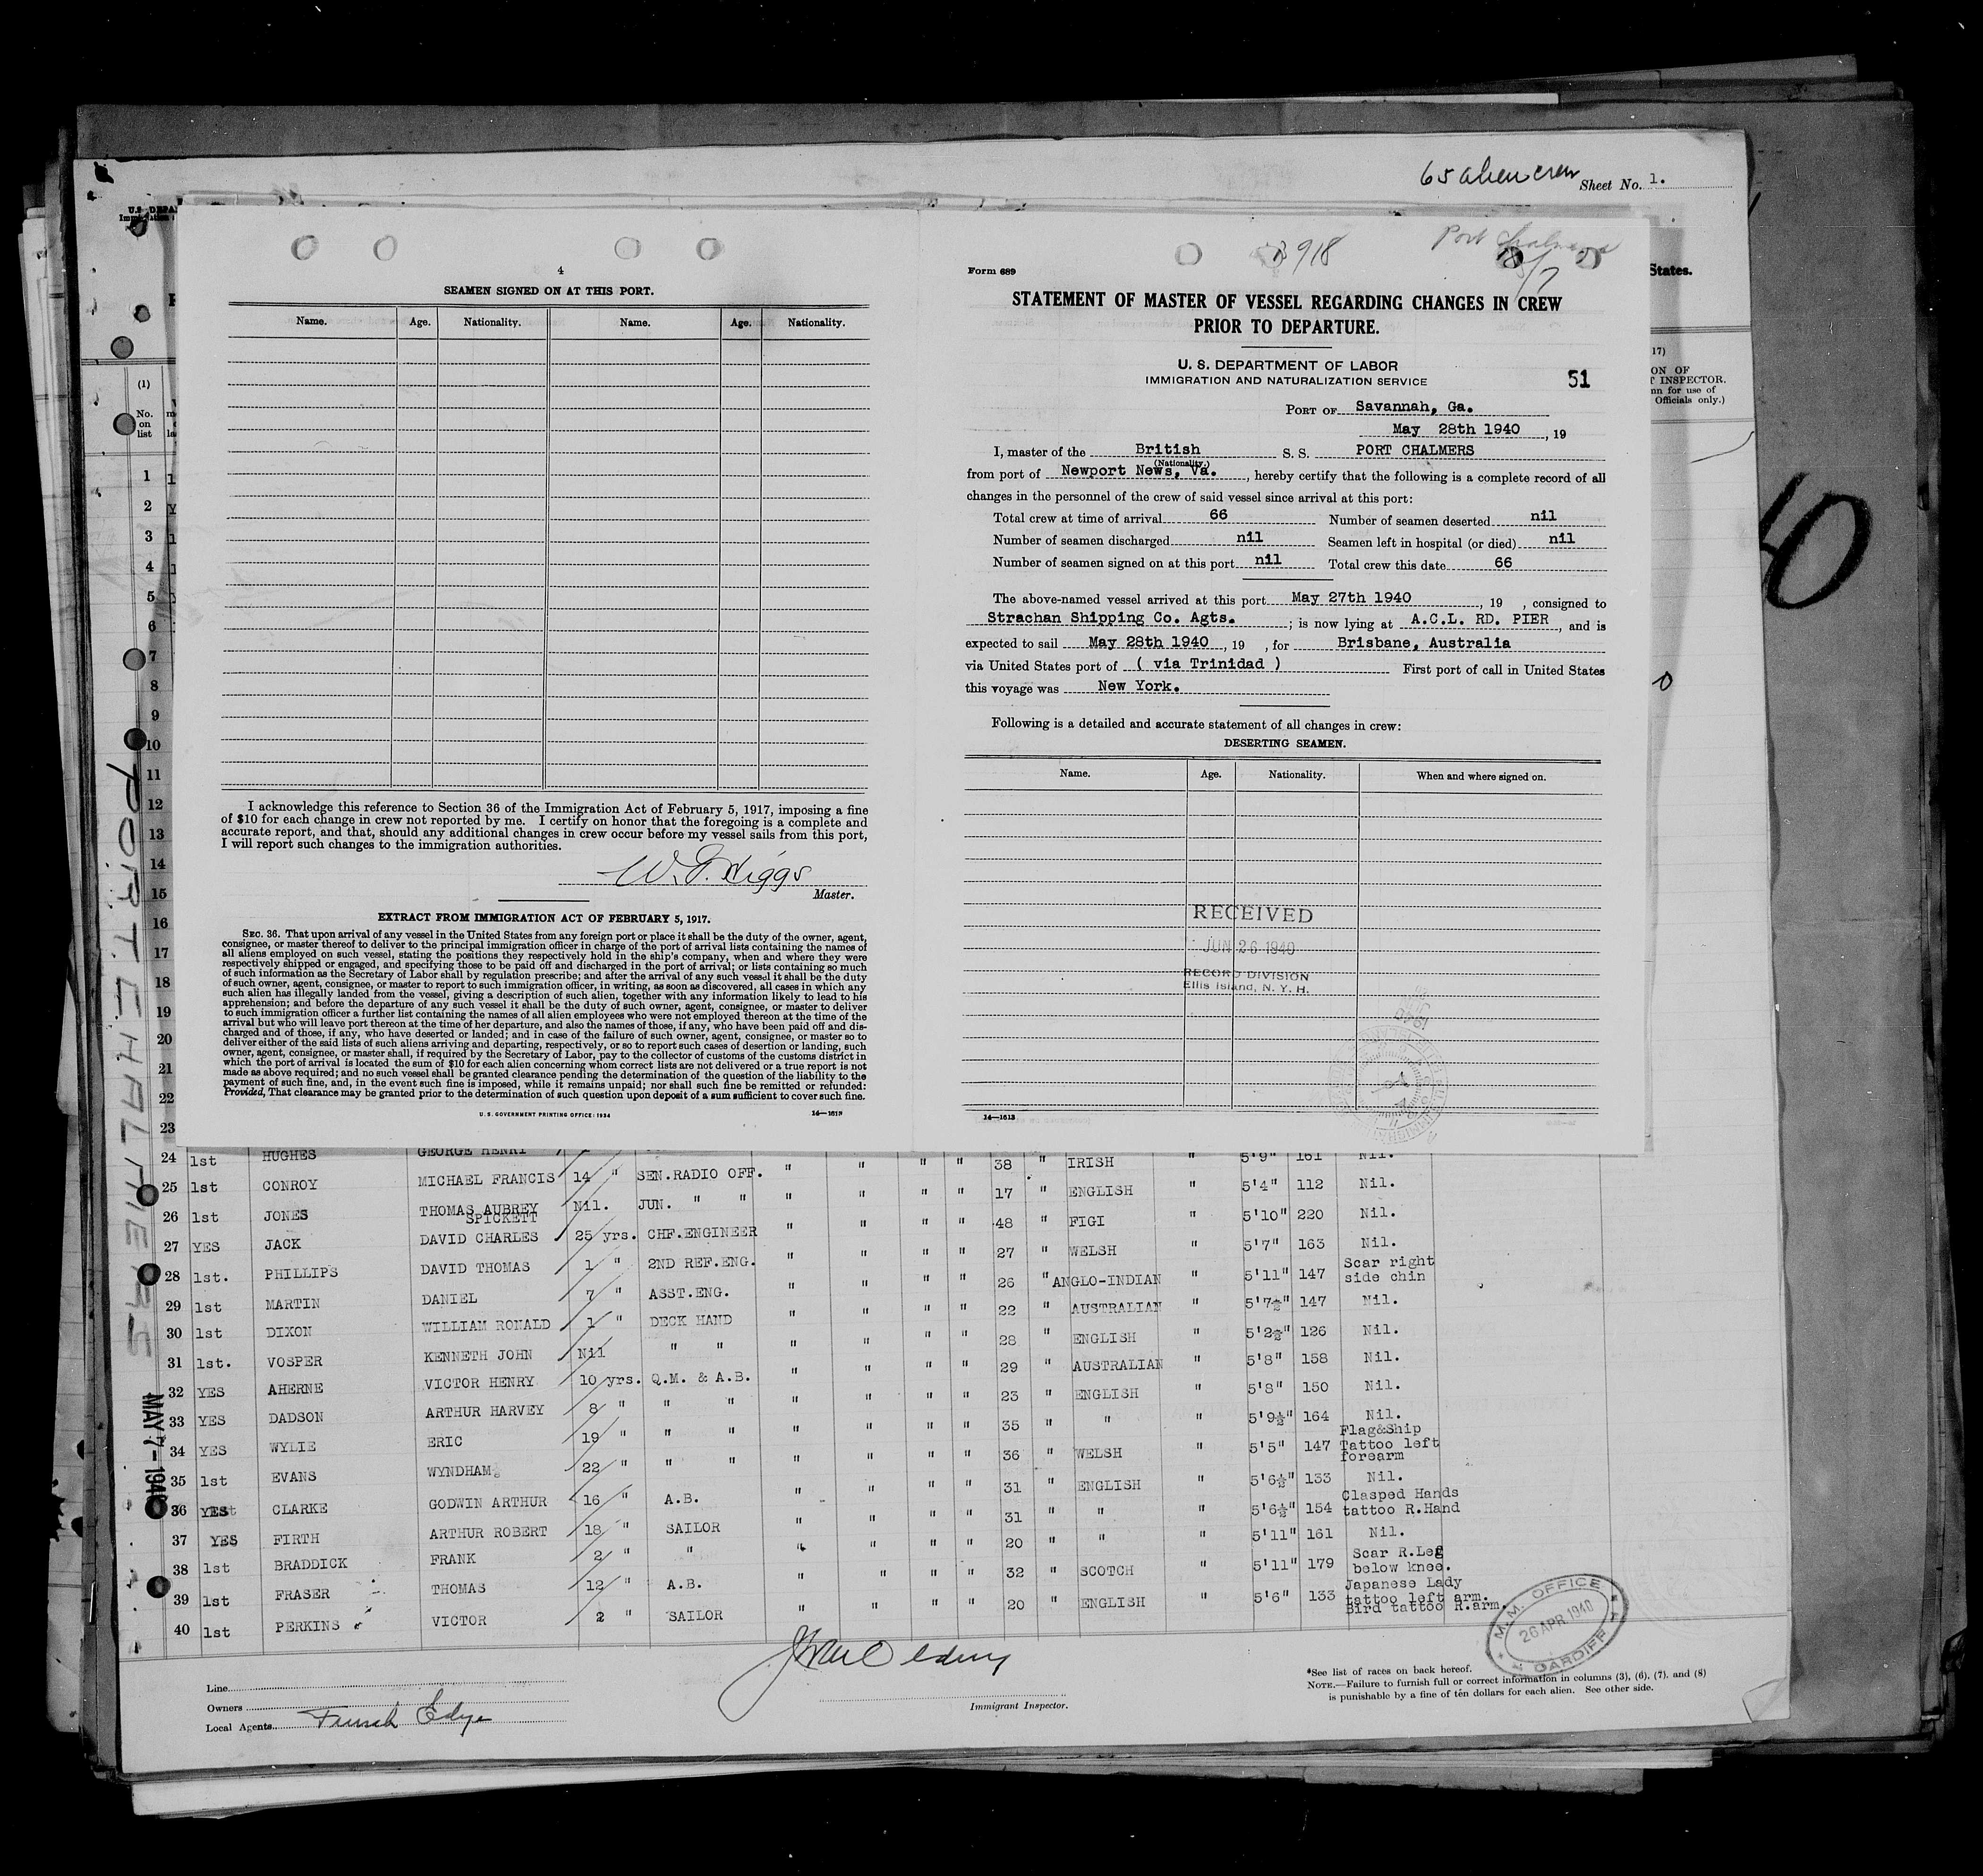 65 alien crew Sheet No. 1.
4
SEAMEN SIGNED ON AT THIS PORT.
Name. Age. Nationality. Name. Age. Nationality.
I acknowledge this reference to Section 36 of the Immigration Act of February 5, 1917, imposing a fine
of $10 for each change in crew not reported by me. I certify on honor that the foregoing is a complete and
accurate report, and that, should any additional changes in crew occur before my vessel sails from this port,
I will report such changes to the immigration authorities.
Master.
EXTRACT FROM IMMIGRATION ACT OF FEBRUARY 5, 1917.
SEC. 36. That upon arrival of any vessel in the United States from any foreign port or place it shall be the duty of the owner, agent,
consignee, or master thereof to deliver to the principal immigration officer in charge of the port of arrival lists containing the names of
all aliens employed on such vessel, stating the positions they respectively hold in the ship's company, when and where they were
respectively shipped or engaged, and specifying those to be paid off and discharged in the port of arrival; or lists containing so much
of such information as the Secretary of Labor shall by regulation prescribe; and after the arrival of any such vessel it shall be the duty
of such owner, agent, consignee, or master to report to such immigration officer, in writing, as soon as discovered, all cases in which any
such alien has illegally landed from the vessel, giving a description of such alien, together with any information likely to lead to his
apprehension; and before the departure of any such vessel it shall be the duty of such owner, agent, consignee, or master to deliver
to such immigration officer a further list containing the names of all alien employees who were not employed thereon at the time of the
arrival but who will leave port thereon at the time of her departure, and also the names of those, if any, who have been paid off and dis-
charged and of those, if any, who have deserted or landed; and in case of the failure of such owner, agent, consignee, or master so to
deliver either of the said lists of such aliens arriving and departing, respectively, or so to report such cases of desertion or landing, such
owner, agent, consignee, or master shall, if required by the Secretary of Labor, pay to the collector of customs of the customs district in
which the port of arrival is located the sum of $10 for each alien concerning whom correct lists are not delivered or a true report is not
made as above required; and no such vessel shall be granted clearance pending the determination of the question of the liability to the
payment of such fine, and, in the event such fine is imposed, while it remains unpaid; nor shall such fine be remitted or refunded:
Provided, That clearance may be granted prior to the determination of such question upon deposit of a sum sufficient to cover such fine.
U. S. GOVERNMENT PRINTING OFFICE: 1934 14—1613
918
Port Chalmers
Form 689
STATEMENT OF MASTER OF VESSEL REGARDING CHANGES IN CREW
PRIOR TO DEPARTURE.
U. S. DEPARTMENT OF LABOR
IMMIGRATION AND NATURALIZATION SERVICE
51
PORT OF Savannah, Ga.
May 28th 1940, 19
I, master of the British S. S. PORT CHALMERS
(Nationality.)
from port of Newport News, Va., hereby certify that the following is a complete record of all
changes in the personnel of the crew of said vessel since arrival at this port:
Total crew at time of arrival 66 Number of seamen deserted nil
Number of seamen discharged nil Seamen left in hospital (or died) nil
Number of seamen signed on at this port nil Total crew this date 66
The above-named vessel arrived at this port May 27th 1940, 19 , consigned to
Strachan Shipping Co. Agts. ; is now lying at A.C.L. RD. PIER, and is
expected to sail May 28th 1940, 19 , for Brisbane, Australia
via United States port of ( via Trinidad ) First port of call in United States
this voyage was New York.
Following is a detailed and accurate statement of all changes in crew:
DESERTING SEAMEN.
Name. Age. Nationality. When and where signed on.
RECEIVED
JUN 26 1940
RECORD DIVISION
Ellis Island, N. Y. H.
14—1613
States.
17)
INSPECTOR.
Officials only.)
(1)
No.
on
list
1
2
3
4
5
6
7
8
9
10
11
12
13
14
15
16
17
18
19
20
21
22
23
PORT CHALMERS
MAY 7-1940
24 1st HUGHES GEORGE HENRY
25 1st CONROY MICHAEL FRANCIS 14 " SEN.RADIO OFF. " " " " 38 " IRISH " 5'9" 161 Nil.
26 1st JONES THOMAS AUBREY SPICKETT Nil. JUN. " " " " " " 17 " ENGLISH " 5'4" 112 Nil.
27 YES JACK DAVID CHARLES 25 yrs. CHF.ENGINEER " " " " 48 " FIGI " 5'10" 220 Nil.
28 1st. PHILLIPS DAVID THOMAS 1 " 2ND REF.ENG. " " " " 27 " WELSH " 5'7" 163 Nil.
29 1st MARTIN DANIEL 7 " ASST.ENG. " " " " 26 " ANGLO-INDIAN " 5'11" 147 Scar right side chin
30 1st DIXON WILLIAM RONALD 1 " DECK HAND " " " " 22 " AUSTRALIAN " 5'7½" 147 Nil.
31 1st. VOSPER KENNETH JOHN Nil " " " " " " 28 " ENGLISH " 5'2½" 126 Nil.
32 YES AHERNE VICTOR HENRY 10 yrs. Q.M. & A.B. " " " " 29 " AUSTRALIAN " 5'8" 158 Nil.
33 YES DADSON ARTHUR HARVEY 8 " " " " " " " 23 " ENGLISH " 5'8" 150 Nil.
34 YES WYLIE ERIC 19 " " " " " " " 35 " " " 5'9½" 164 Nil.
35 1st EVANS WYNDHAM 22 " " " " " " " 36 " WELSH " 5'5" 147 Flag&Ship Tattoo left forearm
36 YES CLARKE GODWIN ARTHUR 16 " A.B. " " " " 31 " ENGLISH " 5'6½" 133 Nil.
37 YES FIRTH ARTHUR ROBERT 18 " SAILOR " " " " 31 " " " 5'6½" 154 Clasped Hands tattoo R.Hand
38 1st BRADDICK FRANK 2 " " " " " " 20 " " " 5'11" 161 Nil.
39 1st FRASER THOMAS 12 " A.B. " " " " 32 " SCOTCH " 5'11" 179 Scar R.Leg below knee.
40 1st PERKINS VICTOR 2 " SAILOR " " " " 20 " ENGLISH " 5'6" 133 Japanese Lady tattoo left arm. Bird tattoo R.arm.
M.M. OFFICE
26 APR 1940
CARDIFF
Line
Owners
Local Agents Funch Edye
Immigrant Inspector.
*See list of races on back hereof.
NOTE.—Failure to furnish full or correct information in columns (3), (6), (7), and (8)
is punishable by a fine of ten dollars for each alien. See other side.